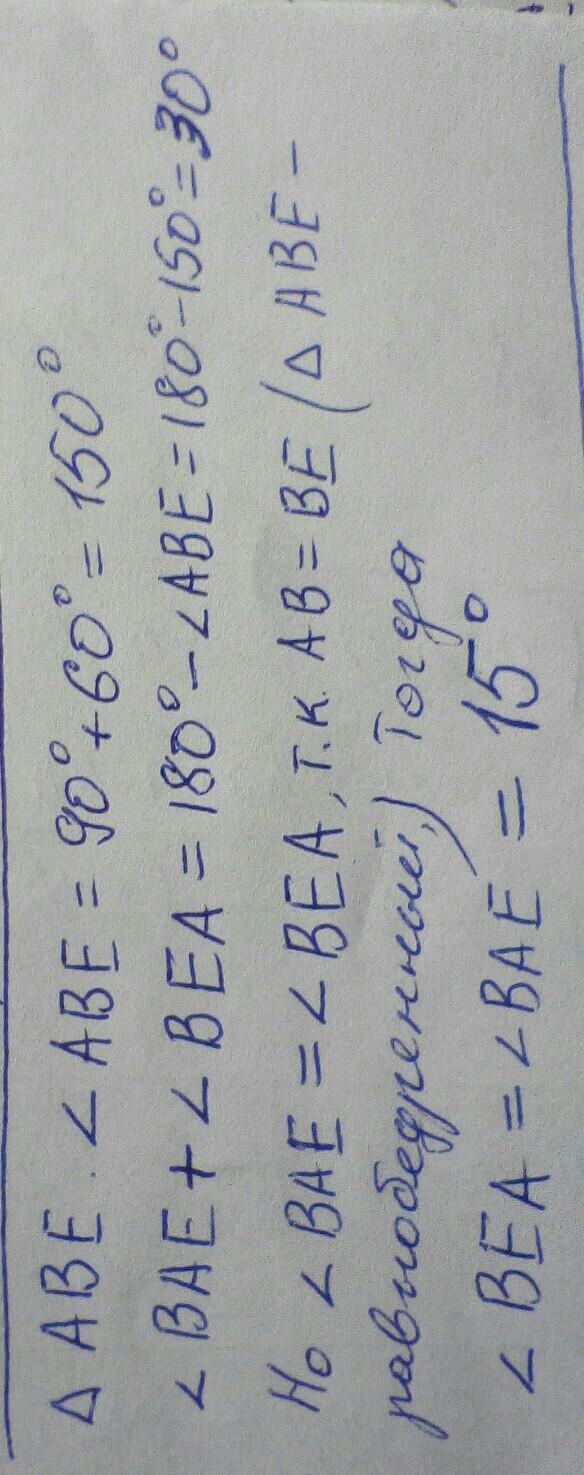 Δ ABE. ∠ABE = 90° + 60° = 150°
∠BAE + ∠BEA = 180° - ∠ABE = 180° - 150° = 30°
Но ∠BAE = ∠BEA, т.к. AB = BE (Δ ABE -
равнобедренный,) Тогда
∠BEA = ∠BAE = 15°